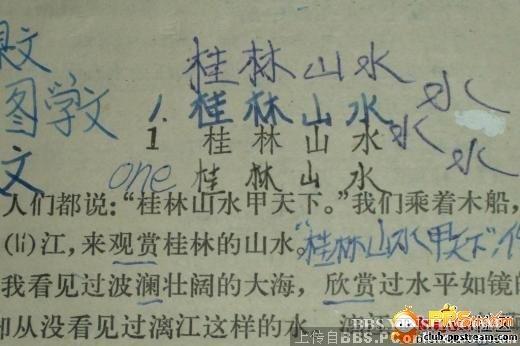 桂林山水
图学文 1. 桂林山水 水
1 桂林山水 水
文 one 桂林山水 水
人们都说：“桂林山水甲天下。”我们乘着木船，
(lí)江，来观赏桂林的山水。“桂林山水甲天下”
我看见过波澜壮阔的大海，欣赏过水平如镜的
却从没看见过漓江这样的水。漓江
上传自BBS.PC
clubopstream.com